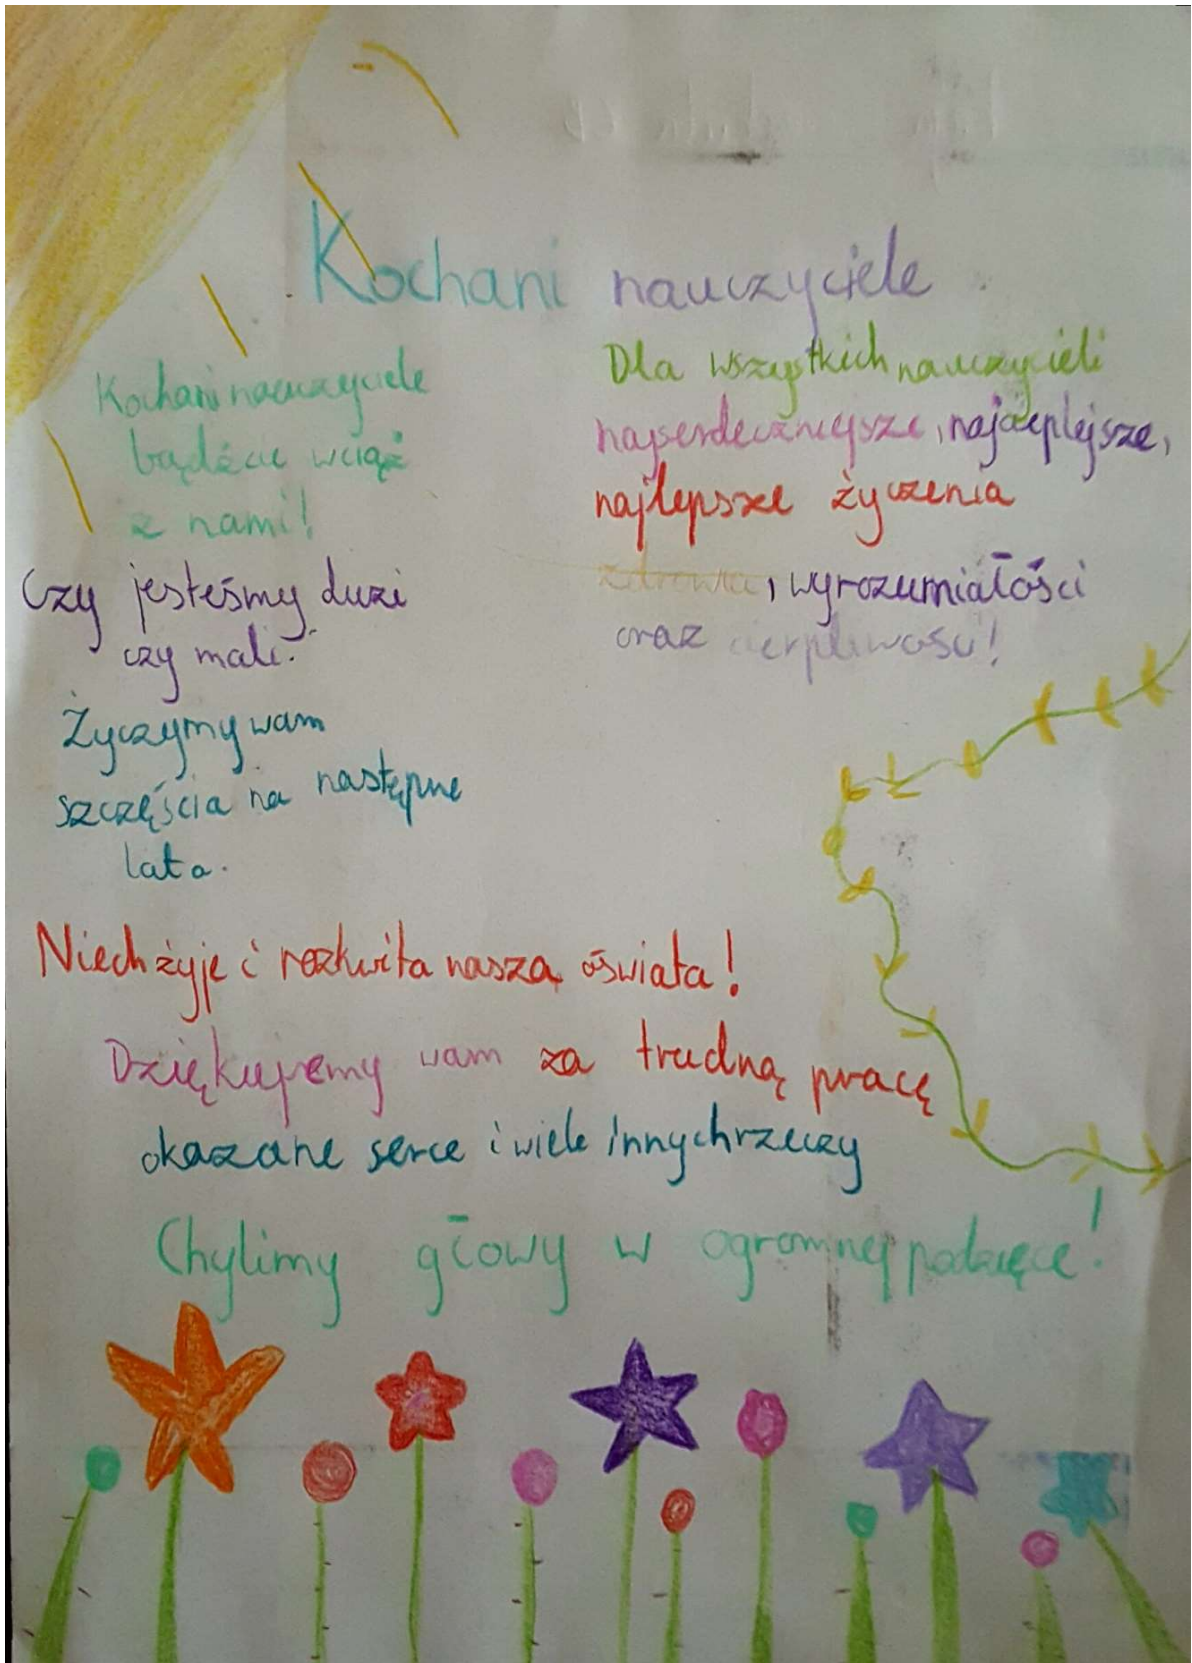 Kochani nauczyciele
Kochani nauczyciele
bądźcie wciąż
z nami!
Czy jesteśmy duzi
czy mali.
Życzymy wam
szczęścia na następne
lata.
Dla wszystkich nauczycieli
najserdeczniejsze, najcieplejsze,
najlepsze życzenia
zdrowia, wyrozumiałości
oraz cierpliwości!
Niech żyje i rozkwita nasza oświata!
Dziękujemy wam za trudną pracę
okazane serce i wiele innych rzeczy
Chylimy głowy w ogromnej podzięce!